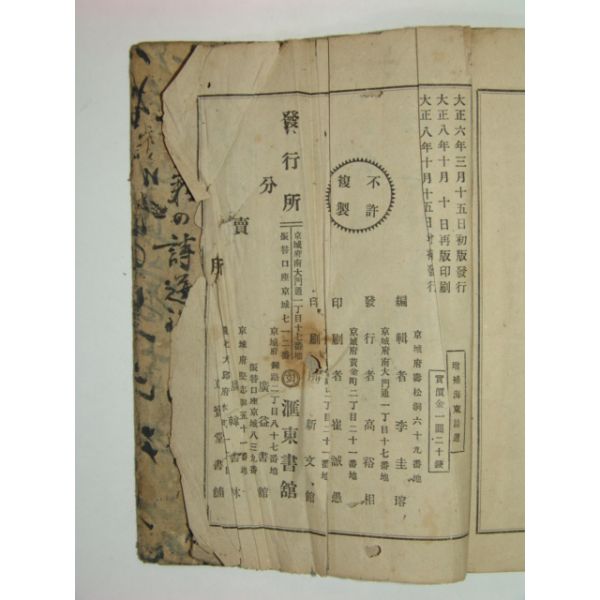 大正六年三月十五日初版發行
大正八年十月 十日再版印刷
大正八年十月十五日再版發行
增補海東詩選
實價金一圓二十錢
京城府壽松洞六十九番地
編輯者 李圭瑢
京城府南大門通一丁目十七番地
發行者 高裕相
京城府黃金町二丁目二十一番地
印刷者 崔誠愚
二丁目二十一番地
印刷所 新文館
不許
複製
發行所
京城府南大門通一丁目十七番地
振替口座京城七一二番
滙東書舘
分賣所
京城府鍾路二丁目八十七番地
廣益書舘
振替口座京城八三九番
京城府堅志洞五十一番地
翰 書林
大邱府本町一丁
堂書舖
の詩